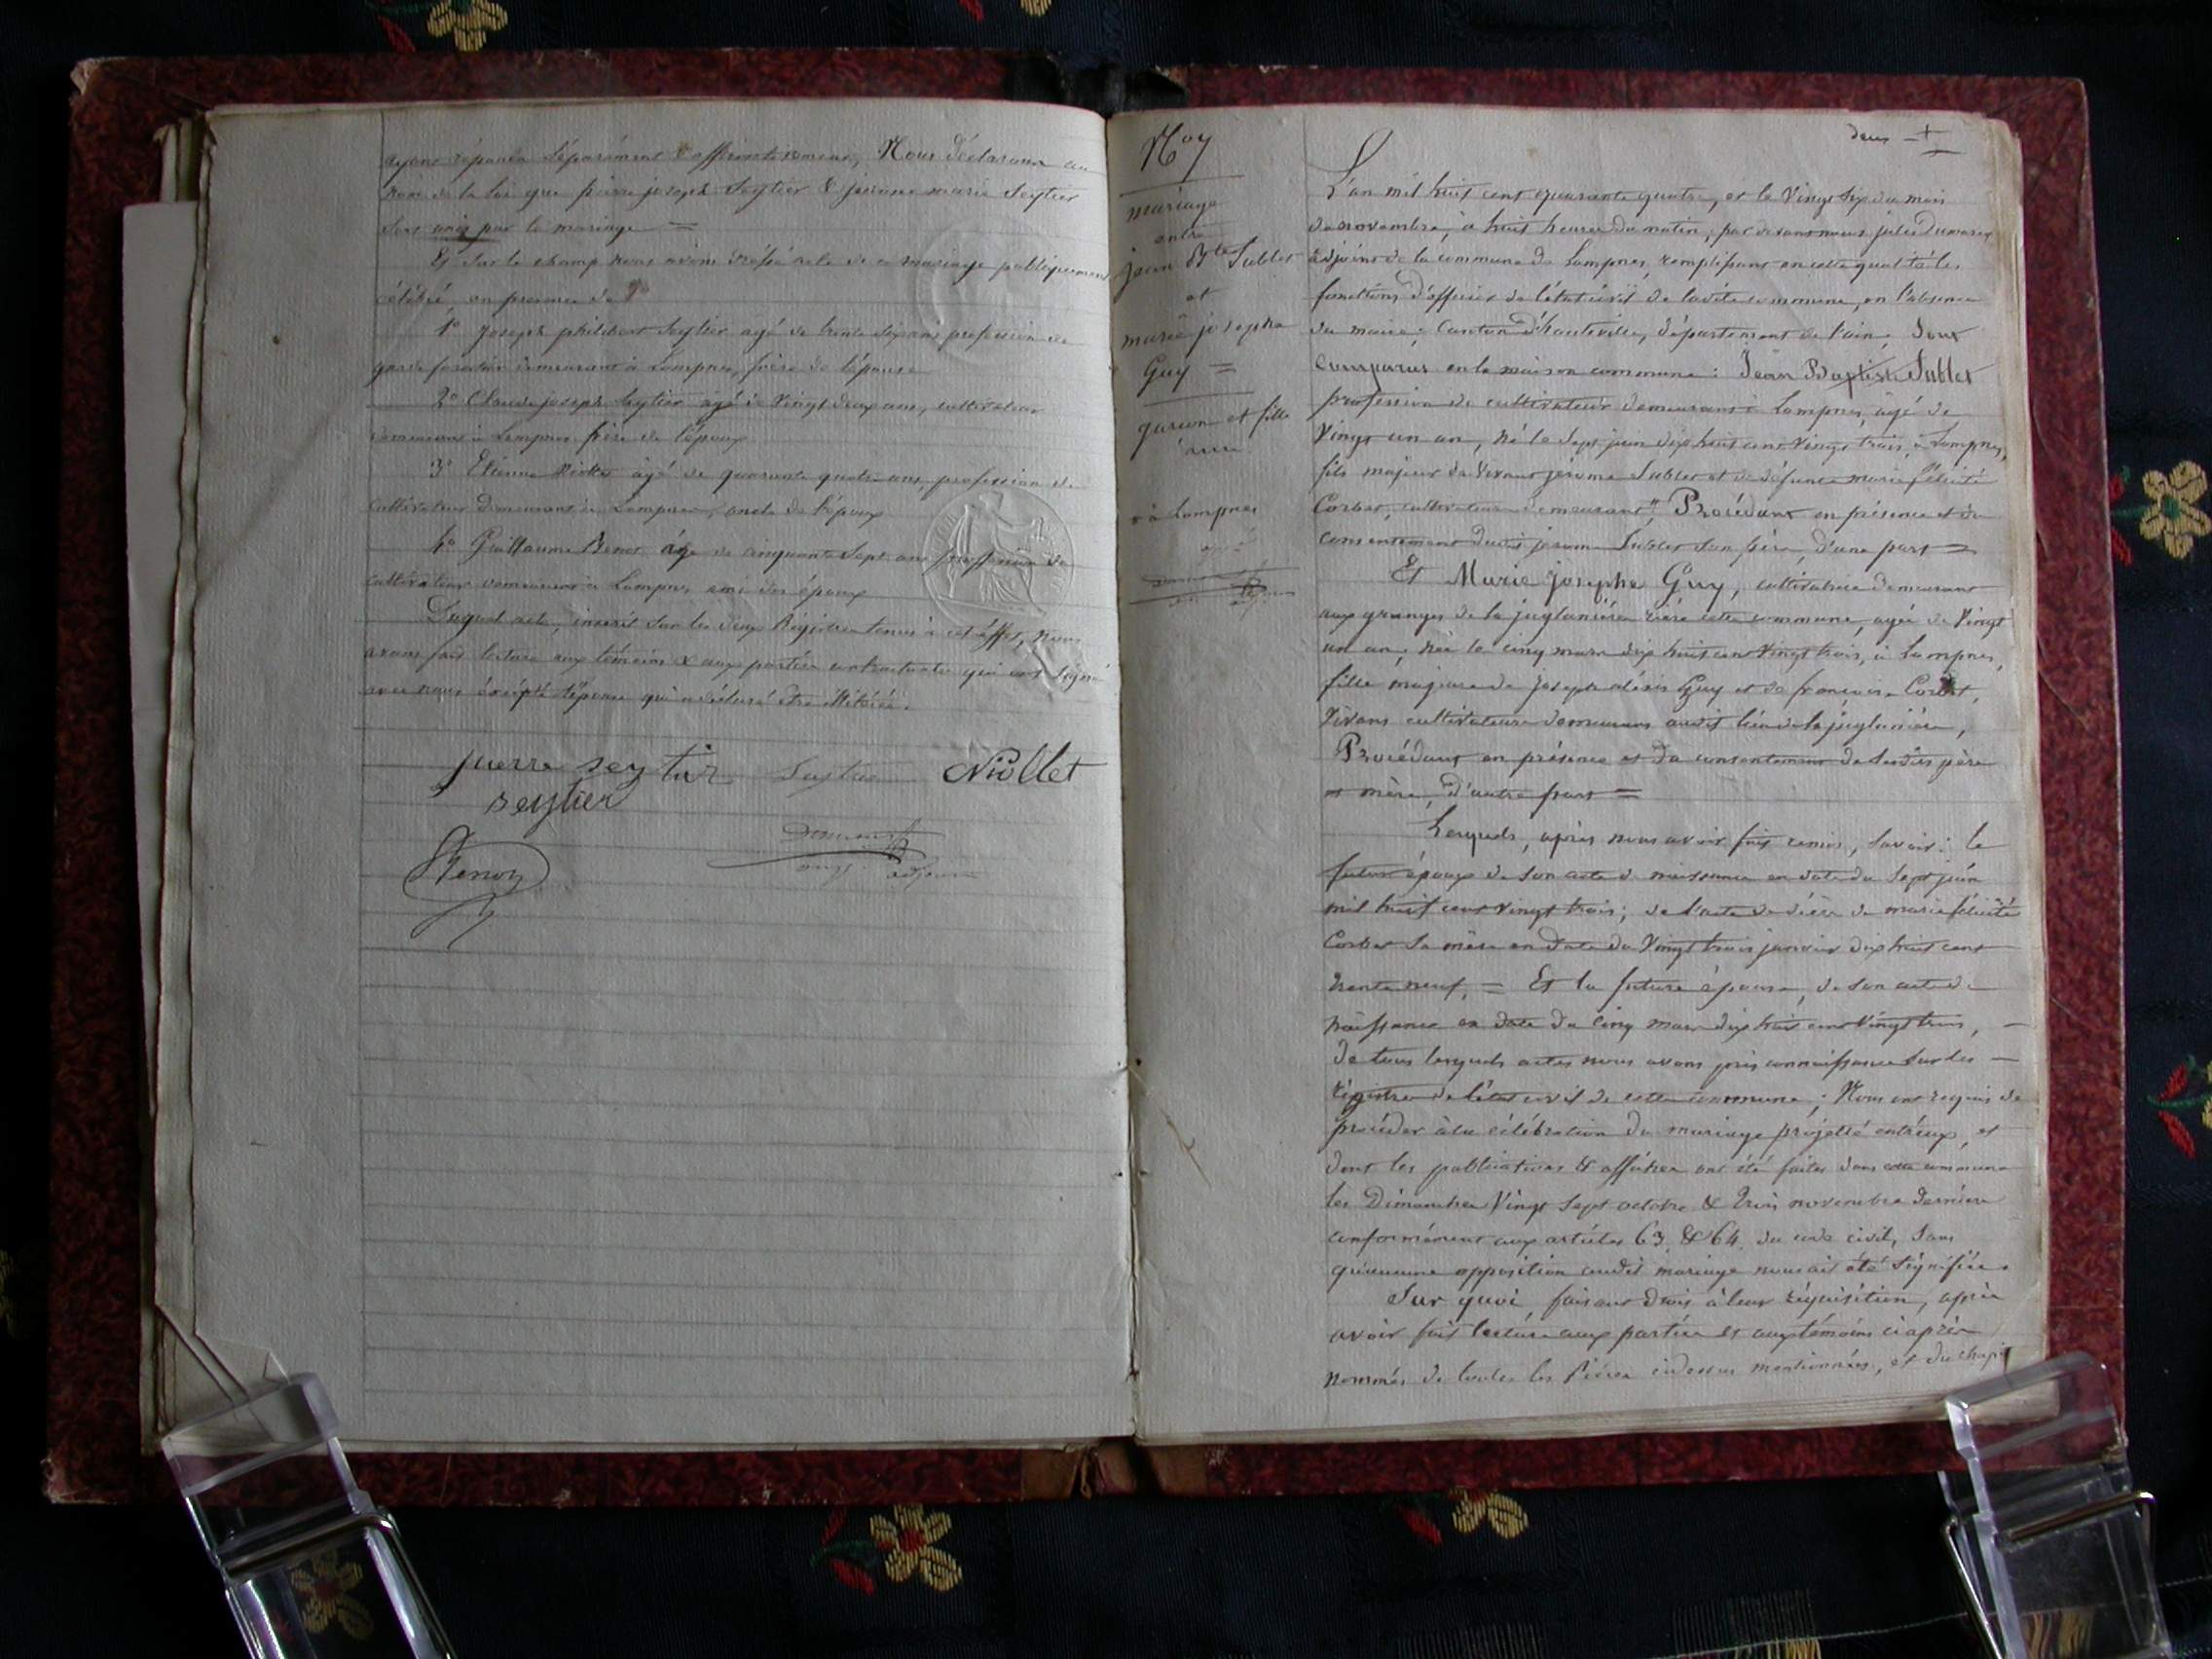 ayant répondu séparément & affirmativement, Nous déclarons au
nom de la loi que pierre joseph Seytier & jeanne marie Seytier
sont unis par le mariage =
Et sur le champ nous avons dréssé acte de ce mariage publiquement
célébré, en presence de
1° Joseph philibert Seytier agé de trente six ans profession de
garde forestier demeurant à Lompnes, frère de l'épouse
2° Claude joseph Seytier agé de Vingt deux ans, cultivateur
demeurant à Lompnes frère de l'époux
3° Etienne Niollet âgé de quarante quatre ans, profession de
cultivateur demeurant à Lompnes, oncle de l'époux
4° Guillaume Benot âgé de cinquante Sept ans profession de
cultivateur demeurant à Lompnes ami des époux
Duquel acte, inscrit sur les deux Registres tenus à cet éffet, nous
avons fait lecture aux témoins & aux parties contractantes qui ont signé
avec nous éxcépté l'épouse qui a déclaré être illétérée.
pierre seytier Seytier Niollet
seytier
adjoint
N° 7
mariage
entre
jean Bte Sublet
et
marie josephe
Guy =
garçon et fille
à Lompnes
adjoint
deux
L'an mil huit cent quarante quatre, et le Vingt Six du mois
de novembre, à huit heures du matin, par devant nous julien
adjoint de la commune de Lompnes, remplissant en cette qualité les
fonctions d'officier de l'état civil de ladite commune, en l'absence
du maire, Canton d'hauteville, département de l'ain, Sont
Comparus en la maison commune : Jean Baptiste Sublet
profession de cultivateur demeurant à Lompnes, âgé de
Vingt un an, né le Sept juin dix huit cent Vingt trois, à Lompnes,
fils majeur de Vivant jerome Sublet et de défunte marie félicité
Corbet, cultivateurs demeurant " Procédant en présence et du
consentement dudit jerome Sublet son père, d'une part =
Et Marie josephe Guy, cultivatrice demeurant
aux granges de la juglanière rière cette commune, agée de Vingt
un an, née le cinq mars dix huit cent Vingt trois, à Lompnes,
fille majeure de Joseph aléxis Guy et de françoise Corbet,
Vivans cultivateurs demeurans audit lieu de la juglanière,
Procédant en présence et du consentement de Sesdits père
et mère, d'autre part =
Lesquels, après nous avoir fait remis, Savoir : le
futur époux de son acte de naissance en date du Sept juin
mil huit cent vingt trois ; de l'acte de décès de marie félicité
Corbet sa mère en date du Vingt trois janvier dix huit cent
trente neuf, = Et la future épouse, de son acte de
naissance en date du cinq mars dix huit cent Vingt trois, —
de tous lesquels actes nous avons pris connaissance sur les —
régistres de l'état civil de cette commune ; Nous ont requis de
procéder à la célébration du mariage projetté entr'eux, et
dont les publications & affiches ont été faites dans cette commune
les Dimanches Vingt Sept octobre & trois novembre derniers
conformément aux articles 63, & 64. du code civil, Sans
qu'aucune opposition audit mariage nous ait été signifiée.
Sur quoi, faisant droit à leur réquisition, après
avoir fait lecture aux parties et aux témoins ci après
nommés de toutes les piéces ci dessus mentionnées, et du chapit